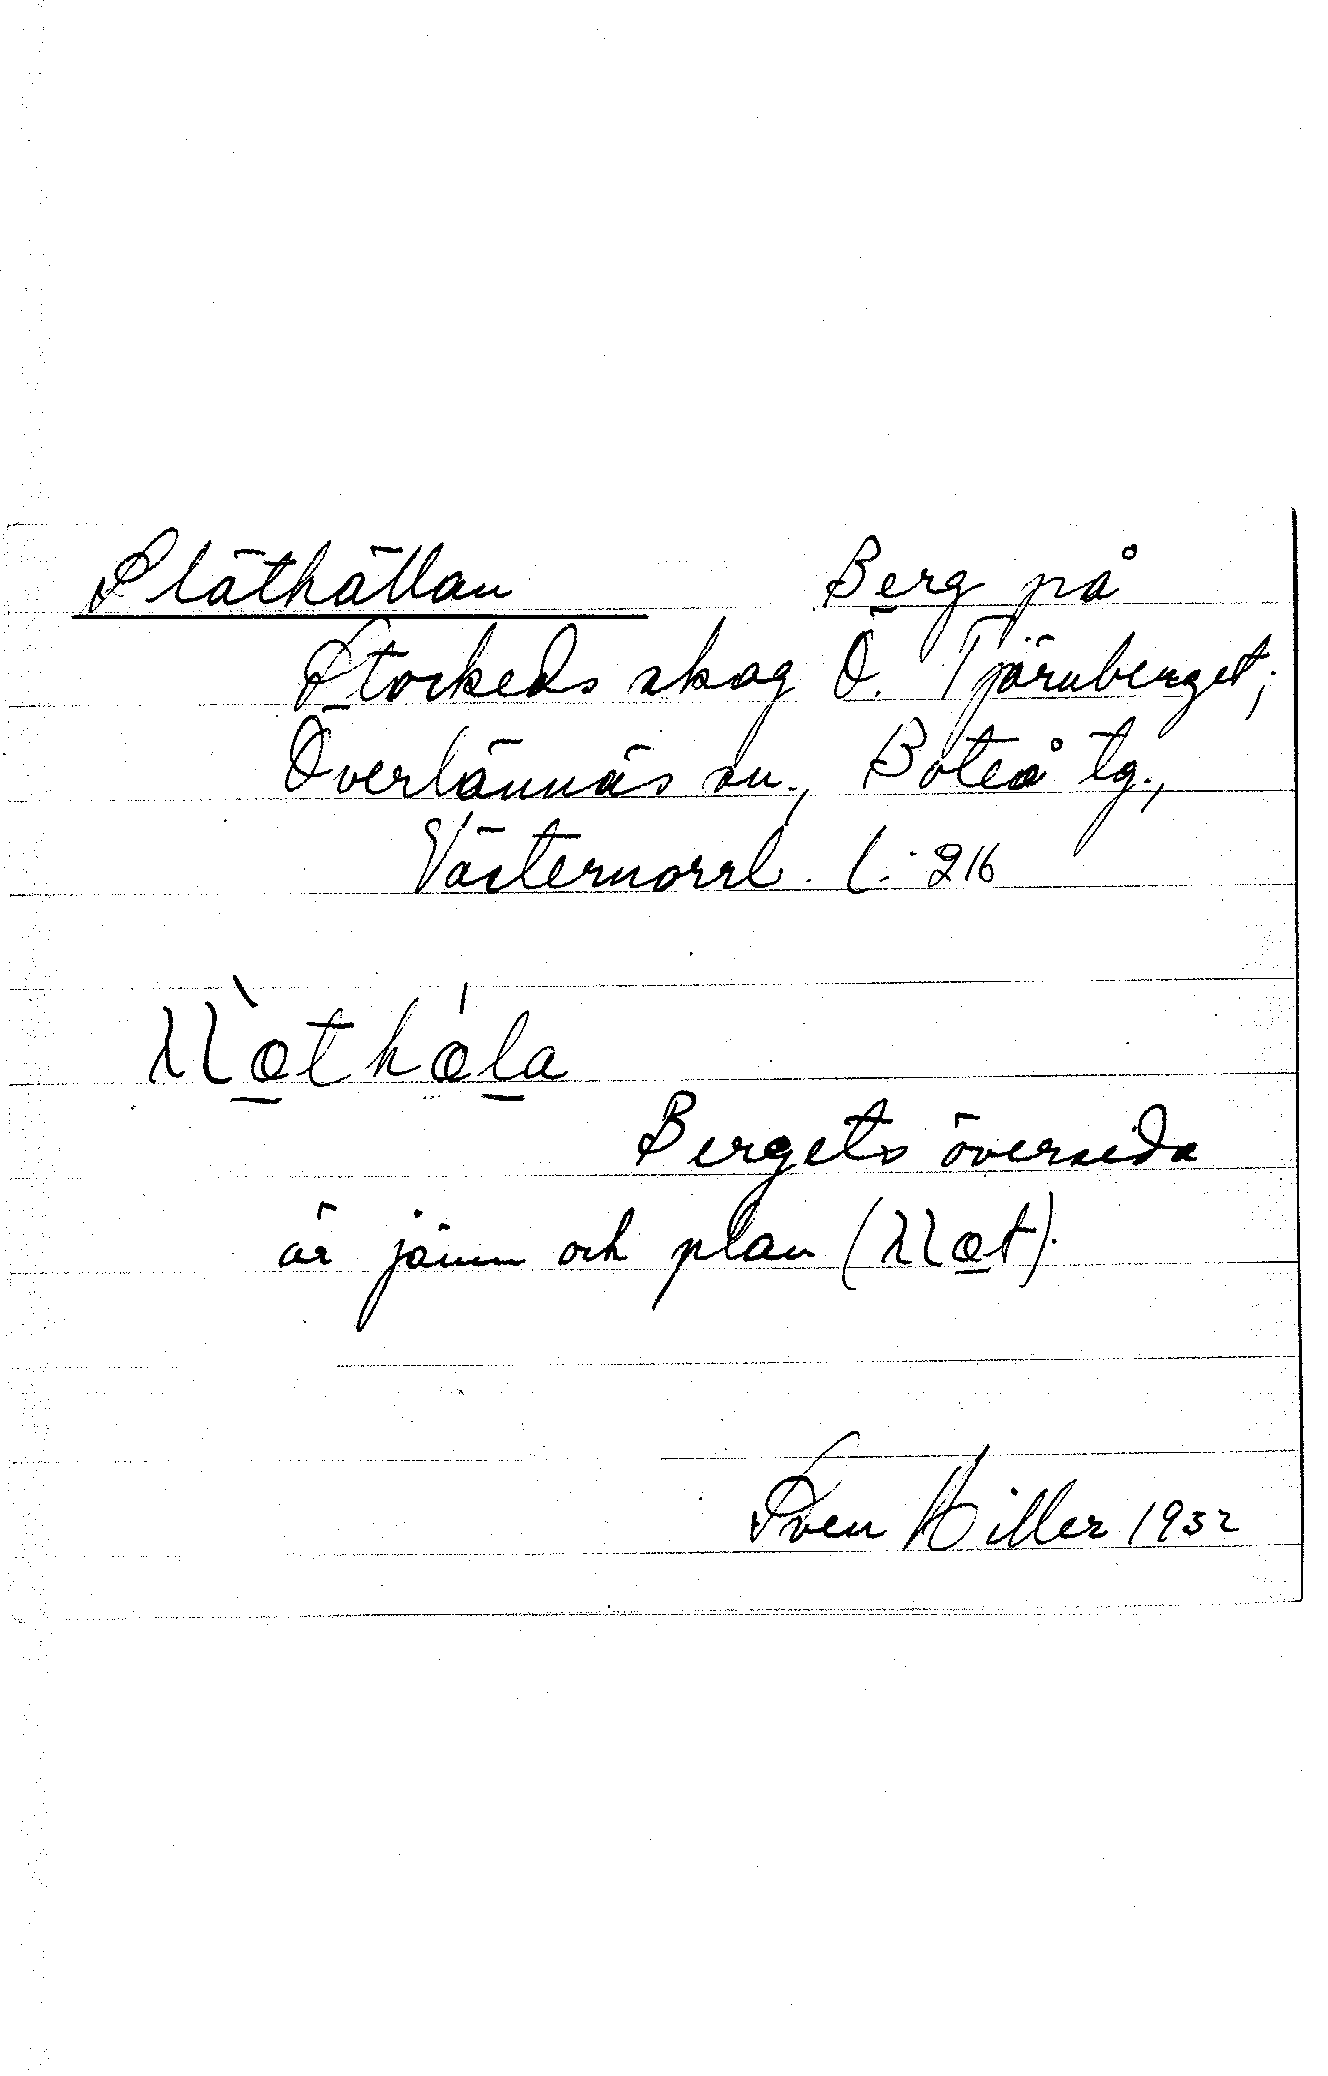 Släthällan Berg på
Stockeds skog Ö. Tjärnberget;
Överlännäs sn., Boteå tg.,
Västernorrl. l. 216
Bergets översida
är jämn och plan
Sven Hiller 1932